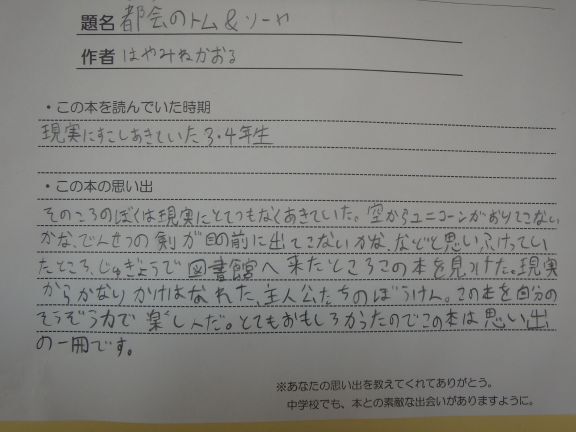 題名 都会のトム&ソーヤ
作者 はやみねかおる
・この本を読んでいた時期
現実にすこしあきていた3・4年生
・この本の思い出
そのころのぼくは現実にとてつもなくあきていた。空からユニコーンがおりてこない
かな、でんせつの剣が目の前に出てこないかな、などと思いふけってい
たところ、じゅぎょうで図書館へ来たところこの本を見つけた。現実
からかなりかけはなれた、主人公たちのぼうけん。この本を自分の
そうぞう力で楽しんだ。とてもおもしろかったのでこの本は思い出
の一冊です。
※あなたの思い出を教えてくれてありがとう。
中学校でも、本との素敵な出会いがありますように。